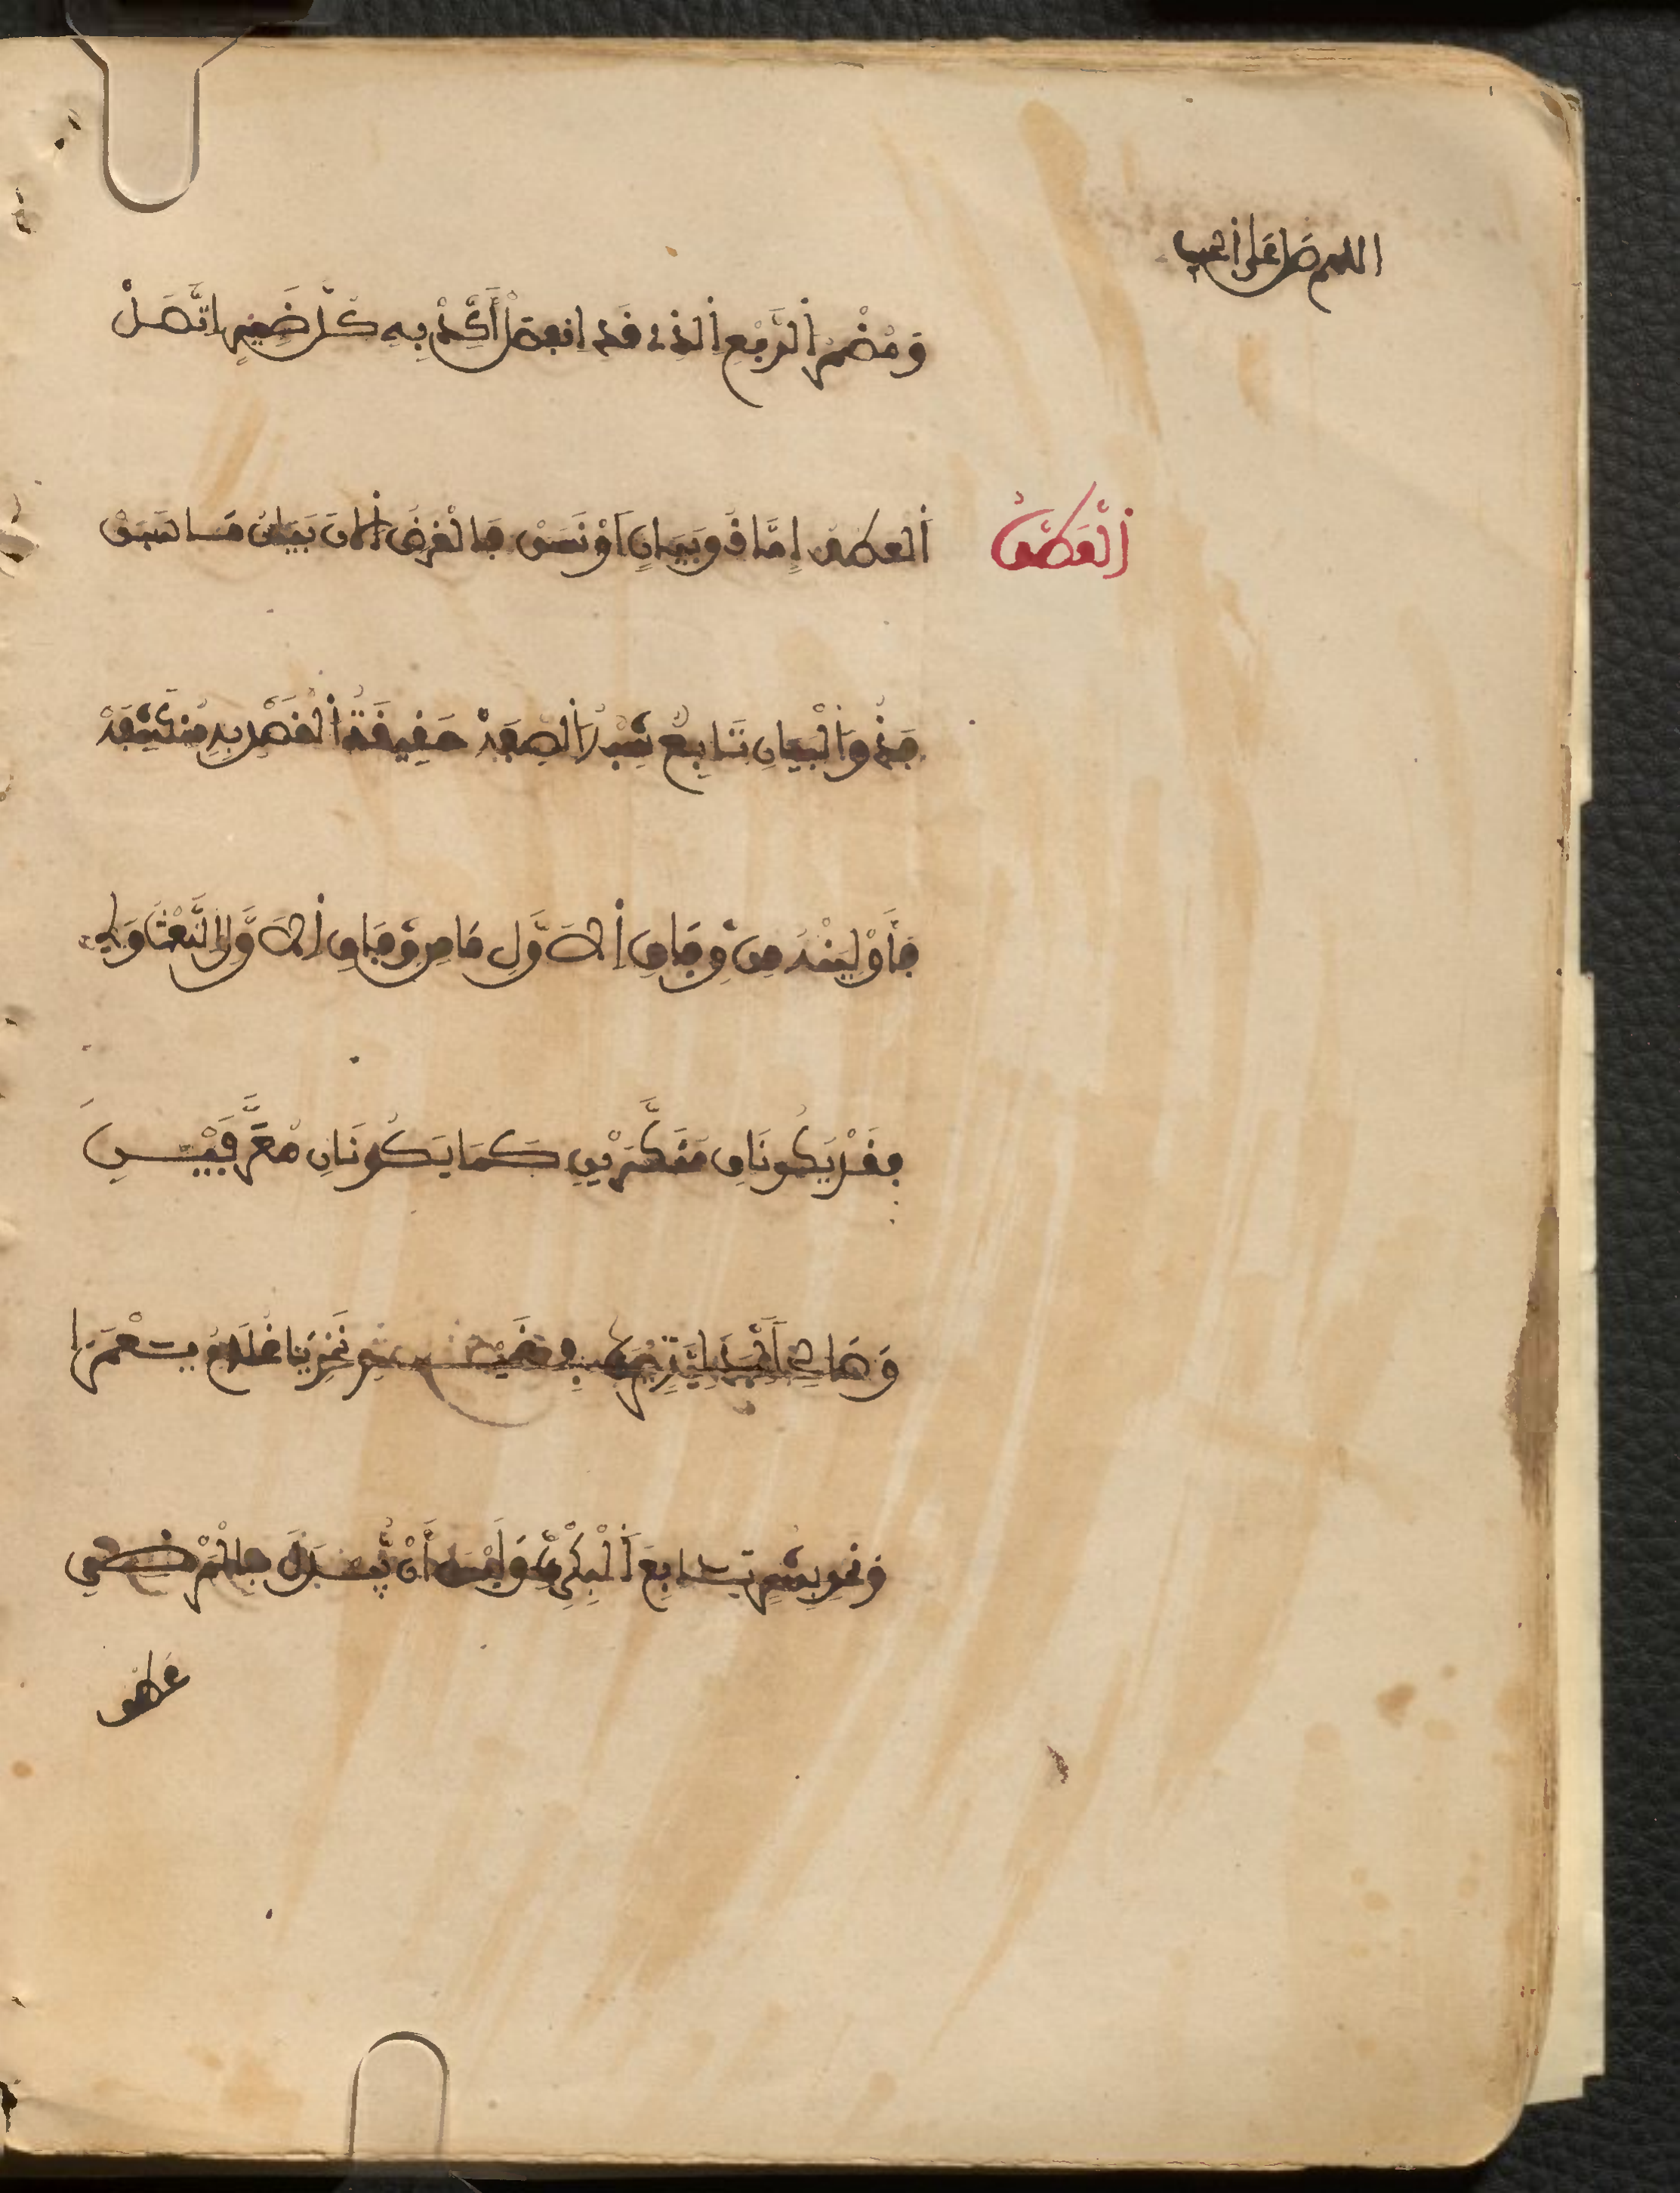 اللهم صل على
وَمُضْمَرُ الرَّفْعِ الذِي قَدِ انفَصَلْ أَكِّدْ بِهِ كُلَّ ضَمِيرٍ اتَّصَلْ
اَلْعَطْفُ
اَلعطف إِمَّا ذُو بَيَانٍ اَوْ نَسَقْ فَالْغَرَضُ اَلانَ بَيَانُ مَا سَبَقْ
فَذُو اَلْبَيَانِ تَابِعٌ شِبْهُ اَلصِّفَهْ حَقِيقَةُ اَلْقَصْدِ بِهِ مُنكَشِفَهْ
فَأَوْلِيَنْهُ مِن وِفَاقِ اَلاَوَّلِ مَا مِن وِفَاقِ اَلاَوَّلِ النَّعْتُ وَلِي
فَقَدْ يَكُونَانِ مُنَكَّرَيْنِ كَمَا يَكُونَانِ مُعَرَّفَيْنِ
وَصَالِحًا لِبَدَلِيَّةٍ يُرَى فِي غَيْرِ نَحْوِ يَا غُلَامُ يَعْمَرَا
وَنحوِ بِشْرٍ تَابِعِ اَلْبِكْرِيِّ وَلَيْسَ أَنْ يُبْدَلَ بِالْمَرْضِيِّ
عطف